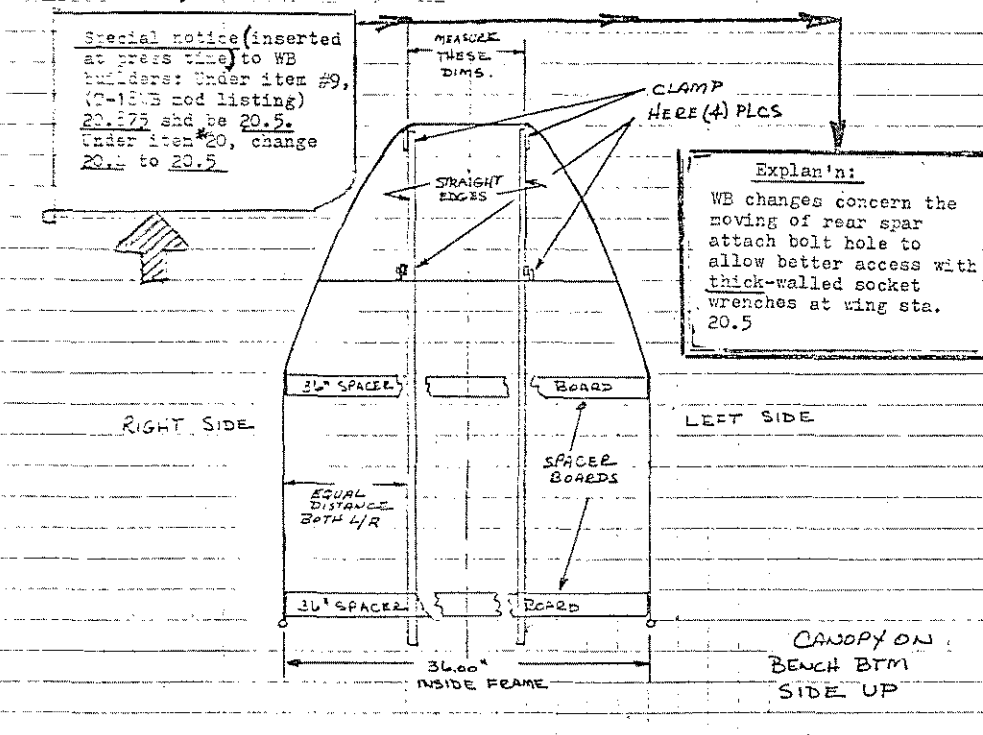 Special notice (inserted
at press time) to WB
builders: Under item #9,
(T-18WB mod listing)
20.375 shd be 20.5.
Under item #20, change
to 20.5
MEASURE
THESE
DIMS.
CLAMP
HERE (4) PLCS
STRAIGHT
EDGES
Explan'n:
WB changes concern the
moving of rear spar
attach bolt hole to
allow better access with
thick-walled socket
wrenches at wing sta.
20.5
36" SPACER
BOARD
RIGHT SIDE
LEFT SIDE
SPACER
BOARDS
EQUAL
DISTANCE
BOTH L/R
36" SPACER
BOARD
36.00"
INSIDE FRAME
CANOPY ON
BENCH BTM
SIDE UP